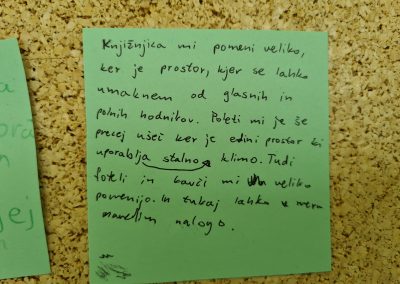 Knjižnjica mi pomeni veliko,
ker je prostor, kjer se lahko
umaknem od glasnih in
polnih hodnikov. Poleti mi je še
precej všeč ker je edini prostor ki
uporablja stalno klimo. Tudi
foteli in kavči mi veliko
pomenijo. In tukaj lahko v miru
naredim nalogo.
jej